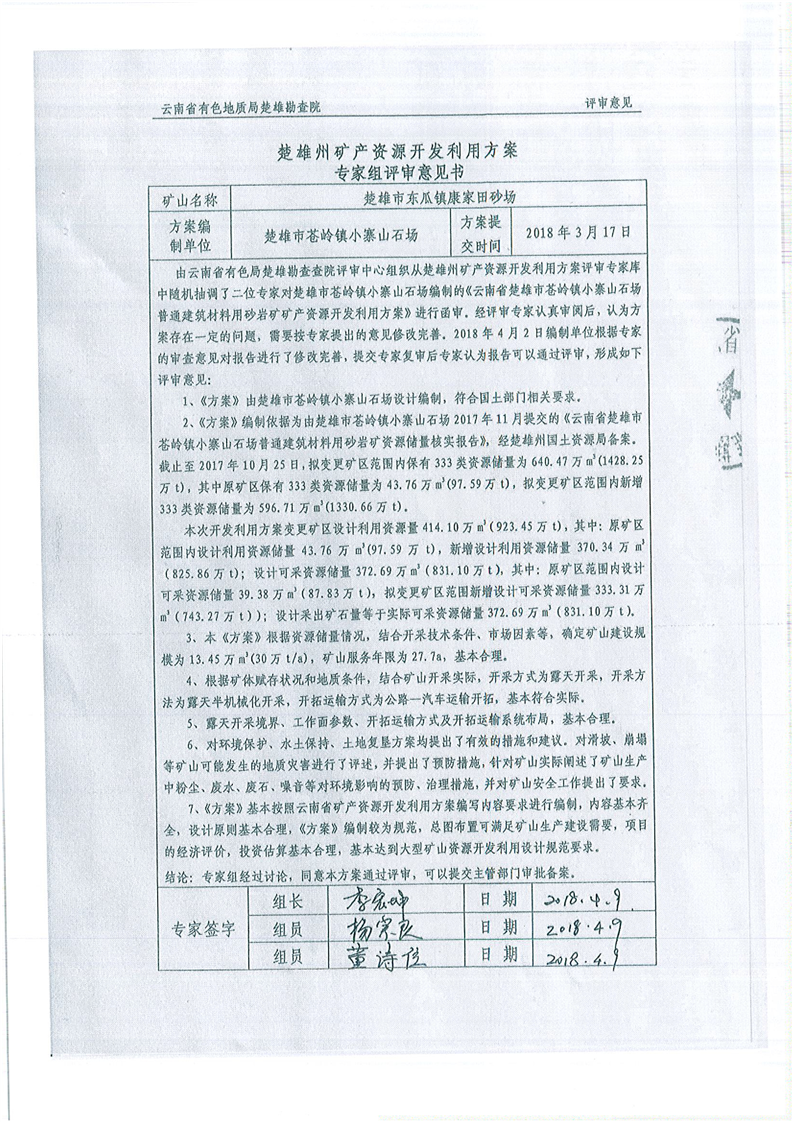 云南省有色地质局楚雄勘查院 评审意见
楚雄州矿产资源开发利用方案
专家组评审意见书
矿山名称 楚雄市东瓜镇康家田砂场
方案编制单位 楚雄市苍岭镇小寨山石场 方案提交时间 2018年3月17日
由云南省有色局楚雄勘查查院评审中心组织从楚雄州矿产资源开发利用方案评审专家库
中随机抽调了二位专家对楚雄市苍岭镇小寨山石场编制的《云南省楚雄市苍岭镇小寨山石场
普通建筑材料用砂岩矿矿产资源开发利用方案》进行函审。经评审专家认真审阅后，认为方
案存在一定的问题，需要按专家提出的意见修改完善。2018年4月2日编制单位根据专家
的审查意见对报告进行了修改完善，提交专家复审后专家认为报告可以通过评审，形成如下
评审意见：
1、《方案》由楚雄市苍岭镇小寨山石场设计编制，符合国土部门相关要求。
2、《方案》编制依据为由楚雄市苍岭镇小寨山石场2017年11月提交的《云南省楚雄市
苍岭镇小寨山石场普通建筑材料用砂岩矿资源储量核实报告》，经楚雄州国土资源局备案。
截止至2017年10月25日，拟变更矿区范围内保有333类资源储量为640.47万m³(1428.25
万t)，其中原矿区保有333类资源储量为43.76万m³(97.59万t)，拟变更矿区范围内新增
333类资源储量为596.71万m³(1330.66万t)。
本次开发利用方案变更矿区设计利用资源量414.10万m³(923.45万t)，其中：原矿区
范围内设计利用资源储量43.76万m³(97.59万t)，新增设计利用资源储量370.34万m³
（825.86万t）；设计可采资源储量372.69万m³(831.10万t)，其中：原矿区范围内设计
可采资源储量39.38万m³(87.83万t)，拟变更矿区范围新增设计可采资源储量333.31万
m³(743.27万t)）；设计采出矿石量等于实际可采资源储量372.69万m³(831.10万t)。
3、本《方案》根据资源储量情况，结合开采技术条件、市场因素等，确定矿山建设规
模为13.45万m³(30万t/a)，矿山服务年限为27.7a，基本合理。
4、根据矿体赋存状况和地质条件，结合矿山开采实际，开采方式为露天开采，开采方
法为露天半机械化开采，开拓运输方式为公路—汽车运输开拓，基本符合实际。
5、露天开采境界、工作面参数、开拓运输方式及开拓运输系统布局，基本合理。
6、对环境保护、水土保持、土地复垦方案均提出了有效的措施和建议。对滑坡、崩塌
等矿山可能发生的地质灾害进行了评述，并提出了预防措施，针对矿山实际阐述了矿山生产
中粉尘、废水、废石、噪音等对环境影响的预防、治理措施，并对矿山安全工作提出了要求。
7、《方案》基本按照云南省矿产资源开发利用方案编写内容要求进行编制，内容基本齐
全，设计原则基本合理，《方案》编制较为规范，总图布置可满足矿山生产建设需要，项目
的经济评价，投资估算基本合理，基本达到大型矿山资源开发利用设计规范要求。
结论：专家组经过讨论，同意本方案通过评审，可以提交主管部门审批备案。
专家签字
组长 李宏坤 日期 2018.4.9
组员 杨宗良 日期 2018.4.9
组员 董诗位 日期 2018.4.9